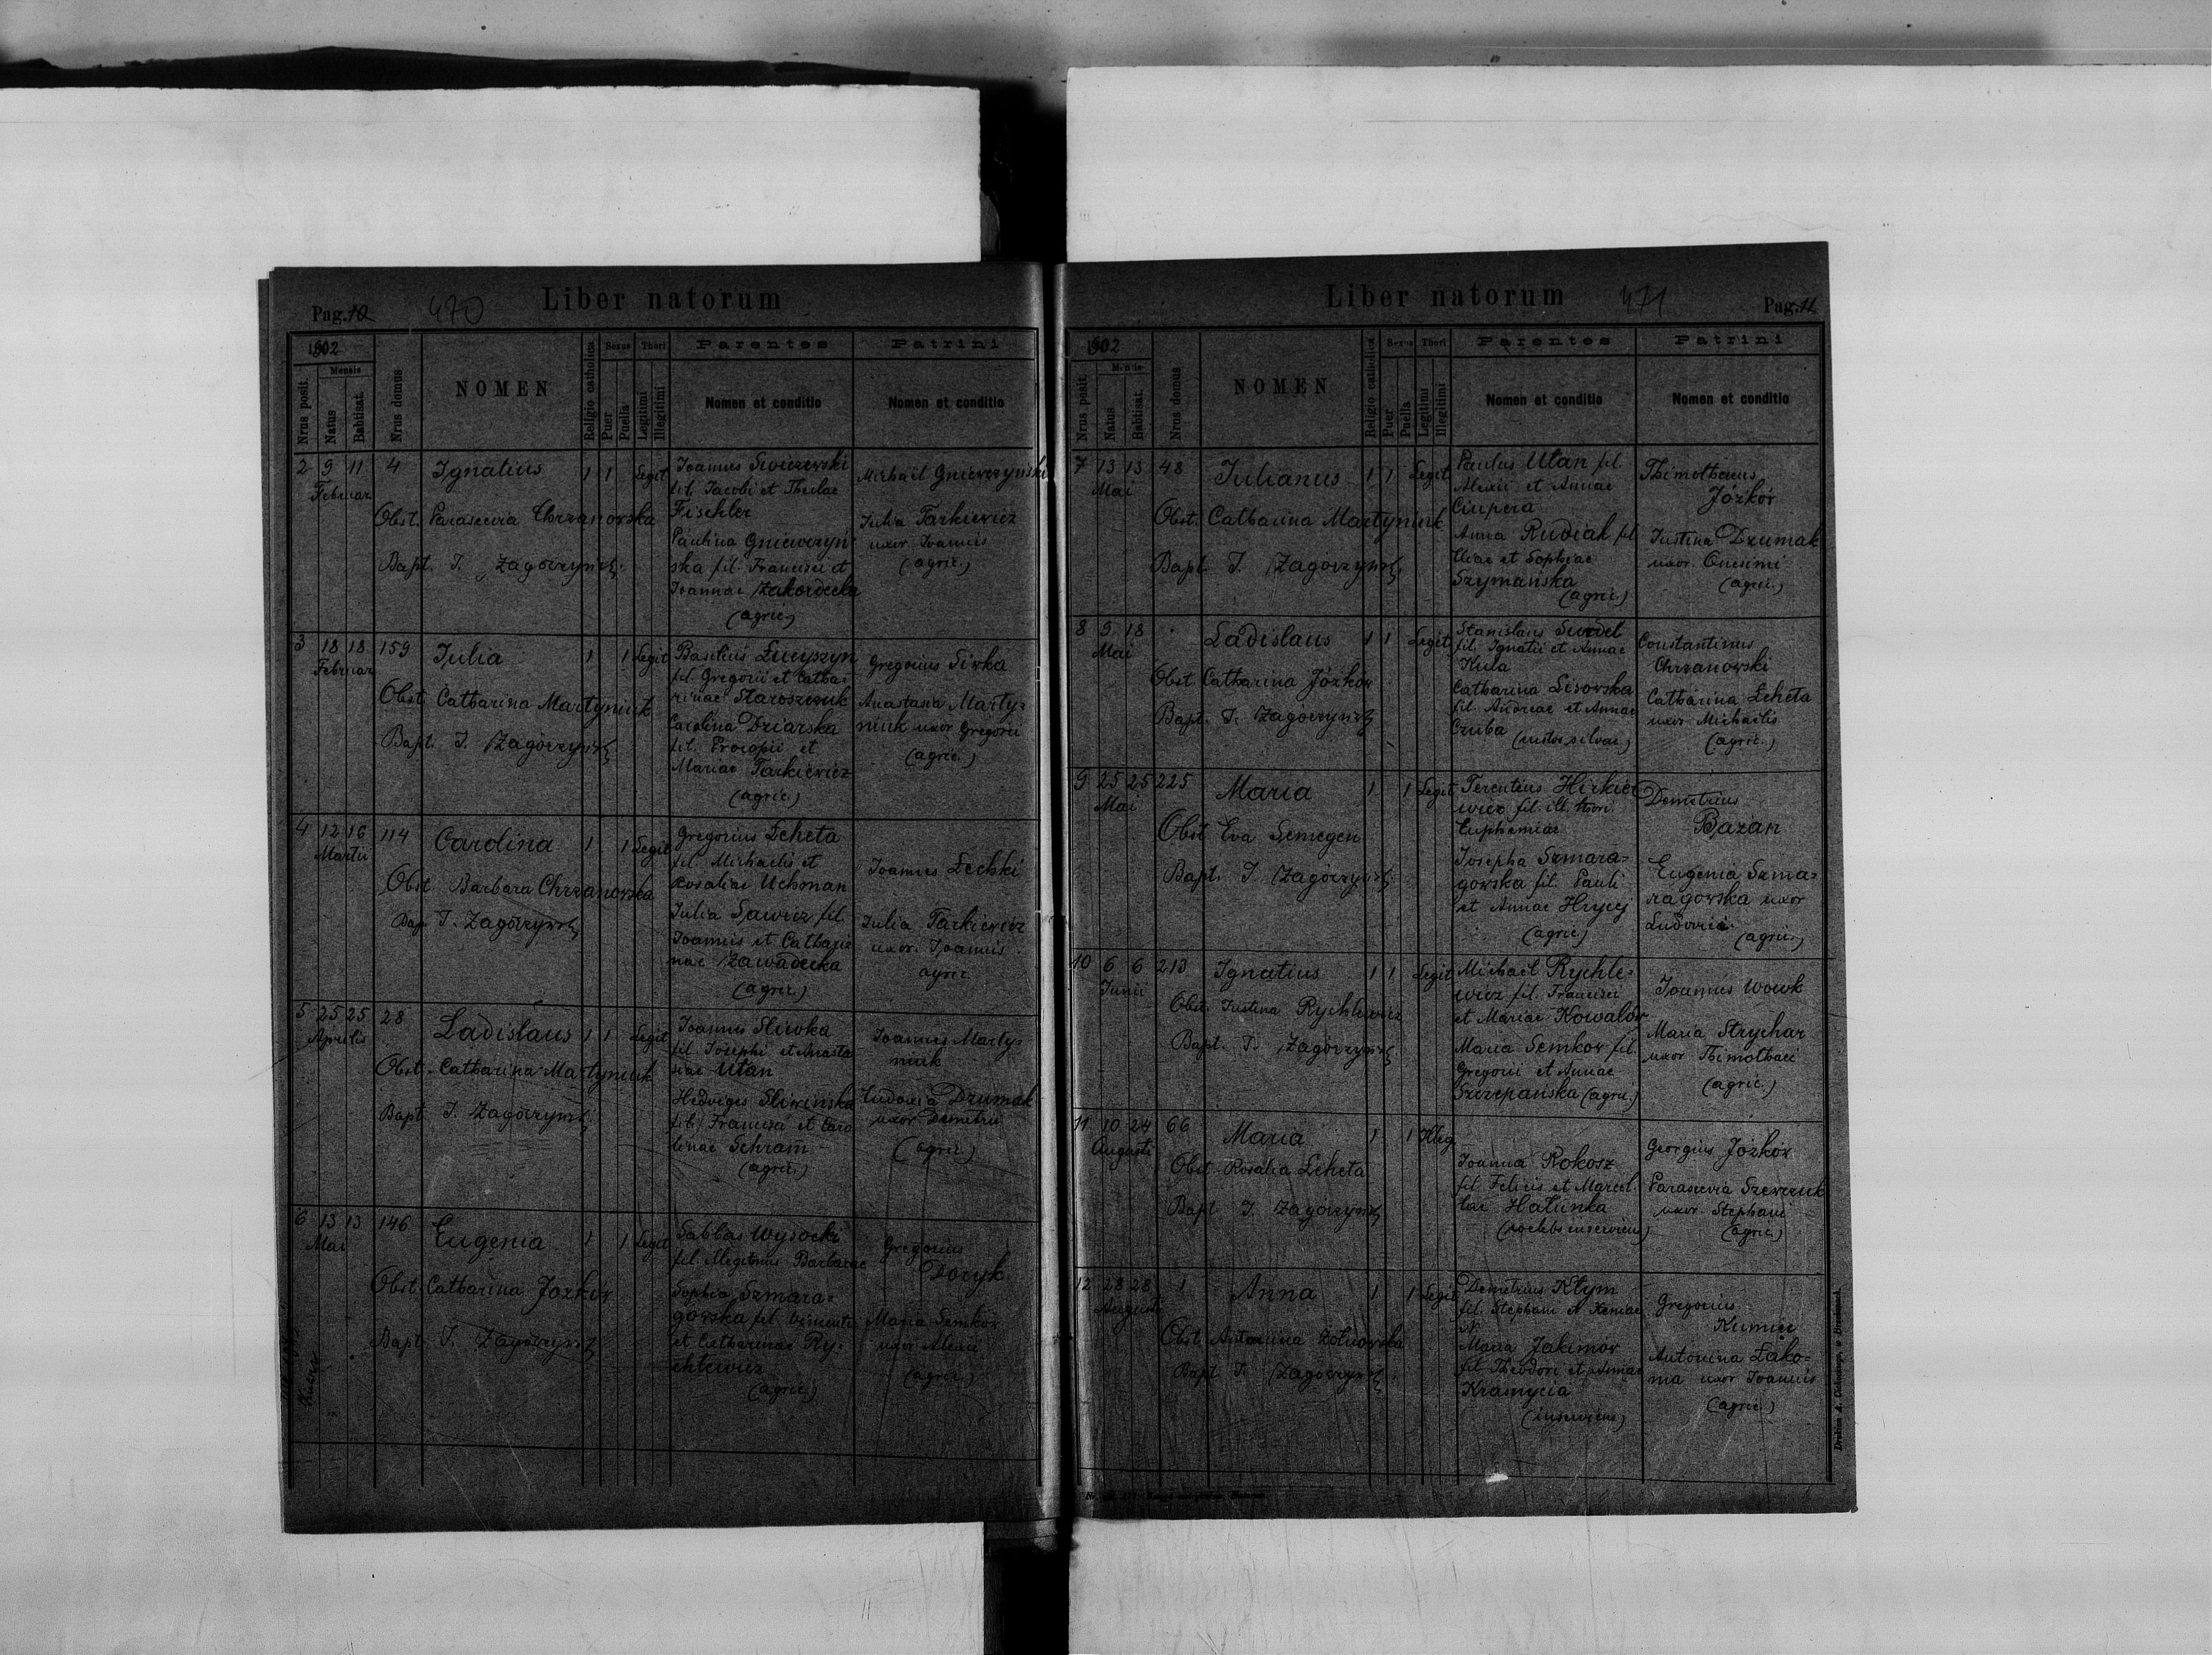 Pag. 10
470
Liber natorum
1902
Mensis
Nrus posit.
Natus
Babtisat.
Nrus domus
NOMEN
Religio catholica
Sexus
Puer
Puella
Thori
Legitimi
Illegitimi
Parentes
Nomen et conditio
Patrini
Nomen et conditio
2 9 11 4 Ignatius 1 1 Legit
Februar
Obst. Parascevia Chrzanowska
Bapt. T. Zagórzyński
Joannes Swiczewski
fil. Jacobi et Theclae
Fischler
Paulina Gniewczyń-
ska fil. Francisci et
Joannae Zakordecka
(agric.)
Michaël Gniewczyński
Julia Tarkiewicz
uxor Joannis
(agric.)
3 18 18 159 Julia 1 1 Legit
Februar
Obst. Catharina Martyniuk
Bapt. T. Zagórzyński
Basilius Łucyszyn
fil. Gregorii et Catha-
rinae Staroszczuk
Carolina Dziarska
fil. Procopii et
Mariae Tarkiewicz
(agric.)
Gregorius Siwka
Anastasia Marty-
niuk uxor Gregorii
(agric.)
4 12 16 114 Carolina 1 1 Legit
Martii
Obst. Barbara Chrzanowska
Bap. T. Zagórzyński
Gregorius Łeheta
fil. Michaelis et
Rosaliae Uchman
Julia Sawicz fil
Joannis et Cathari
nae Zawadecka
(agric.)
Joannes Lechki
Julia Tarkiewicz
uxor. Joannis.
agric.
5 25 25 28 Ladislaus 1 1 Legit
Aprilis
Obst. Catharina Martyniuk
Bapt. T. Zagórzyński
Joannes Sliwka
fil. Josephi et Anasta
siae Utan
Hedviges Sliwinska
fil. Francisci et Caro
linae Schram
(agric.)
Joannes Marty-
niuk
Eudoxia Drumak
uxor Demetrii
(agric.)
6 13 13 146 Eugenia 1 1 Legit
Mai
Obst. Catharina Józków
Bapt. T. Zagórzyński
Sabbas Wysocki
fil. illegitimus Barbarae
Sophia Szmara-
gowska fil.
et Catharinae Ry-
chlewicz
(agric.)
Gregorius
Doryk
Maria Semków
uxor Alexii
(agric.)
Liber natorum
471
Pag. 11
1902
Mensis
Nrus posit.
Natus
Babtisat.
Nrus domus
NOMEN
Religio catholica
Sexus
Puer
Puella
Thori
Legitimi
Illegitimi
Parentes
Nomen et conditio
Patrini
Nomen et conditio
7 13 13 48 Julianus 1 1 Legit
Mai
Obst. Catharina Martyniuk
Bapt T. Zagórzyński
Paulus Utan fil.
Alexii et Annae
Ciupera
Anna Rudiak fil
Eliae et Sophiae
Szymańska
(agric.)
Thimotheus
Józków
Justina Drumak
uxor. Onisimi
(agric.)
8 9 18 Ladislaus 1 1 Legit
Mai
Obst. Catharina Józków
Bapt. T. Zagórzyński
Stanislaus
fil. Ignatii et Annae
Kula
Catharina Lisowska
fil. Andreae et Annae
Czuba (custos silvae)
Constantinus
Chrzanowski
Catharina Łeheta
uxor Michaelis
(agric.)
9 25 25 225 Maria 1 1 Legit
Mai
Obst. Eva Semegen
Bapt. T. Zagórzyński
Terentius Hirkie
wicz fil. ill. thori
Euphemiae
Josepha Szmara-
gowska fil. Pauli
et Annae Hrycej
(agric.)
Demetrius
Bazan
Eugenia Szma-
ragowska uxor
Ludovici
(agric.)
10 6 6 213 Ignatius 1 1 Legit
Junii
Obst. Justina Rychlewicz
Bapt. T. Zagórzyński
Michaël Rychle-
wicz fil. Francisci
et Mariae Kowalów
Maria Semkow fil.
Gregorii et Annae
Szczepańska (agric.)
Joannes Wowk
Maria Strychar
uxor Thimothaei
(agric.)
11 10 24 66 Maria 1 1 Illeg.
Augusti
Obst. Rosalia Łeheta
Bapt T. Zagórzyński
Joanna Rokosz
fil. Felicis et Marcel-
lae Hałunka
(coelebs inserviens)
Georgius Józków
Parascevia Szewczuk
uxor. Stephani
(agric.)
12 28 28 1 Anna 1 1 Legit.
Augusti
Obst. Antonina Żołnowska
Bapt T. Zagórzyński
Demetrius Kłym
fil. Stephani et Xeniae
N.
Maria Jakimów
fil. Theodori et Annae
Kramycia
(inserviens)
Gregorius
Kumen
Antonina Łako-
ma uxor Joannis
(agric.)